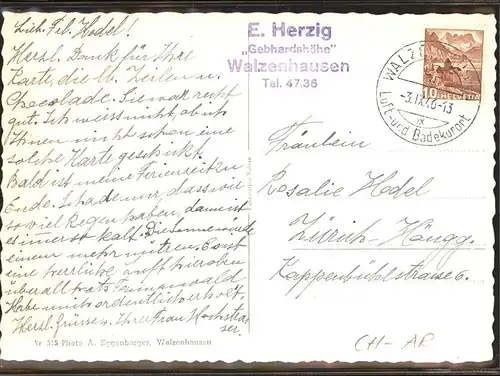 Lieb. Frl. Hodel!
Herzl. Dank für Ihre
Karte, die lb. Zeilen u.
Chocolade. Sie war recht
gut. Ich weiss nicht, ob ich
Ihnen nicht schon eine
solche Karte geschickt
Bald ist meine Ferienzeit zu
Ende. Schade nur, dass wir
so viel Regen haben, dann ist
es immer st kalt. Die Sonne würde
einem mehr nützen. Sonst
eine herrliche Luft hier oben
überall trotz Tannenwald
Habe mich ordentlich erholt.
Herzl. Grüsse v. Ihrer Frau Hochstras
ser.
Nr 315 Photo A. Eggenberger, Walzenhausen
E. Herzig
„Gebhardshöhe"
Walzenhausen
Tel. 47.36
10 HELVETIA
-3.IX.46-13
IX
Luft- und Badekurort
Fräulein
Rosalie Hodel
Zürich-Höngg.
Kappenbühlstrasse 6.
CH-AR